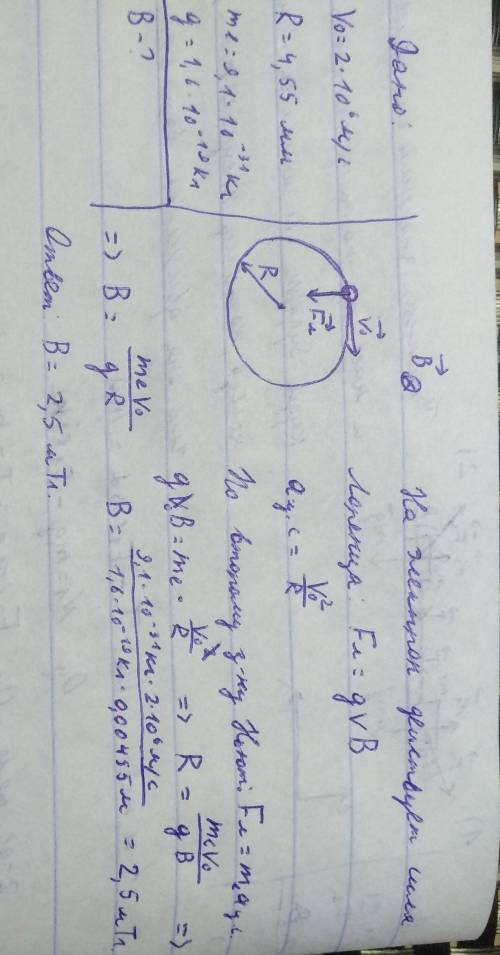 Дано:
V₀ = 2·10⁶ м/с
R = 4,55 мм
me = 9,1·10⁻³¹ кг
q = 1,6·10⁻¹⁹ кл
B - ?
B⃗ ⊗
V⃗₀
F⃗л
R
На электрон действует сила
Лоренца: Fл = qVB
aц.с = V₀²/R
По второму з-ну Ньют: Fл = me aц.с.
qV₀B = me · V₀²/R => R = meV₀/qB =>
=> B = meV₀/qR B = 9,1·10⁻³¹ кг · 2·10⁶ м/с / 1,6·10⁻¹⁹ кл · 0,00455 м = 2,5 мТл
Ответ: B = 2,5 мТл.